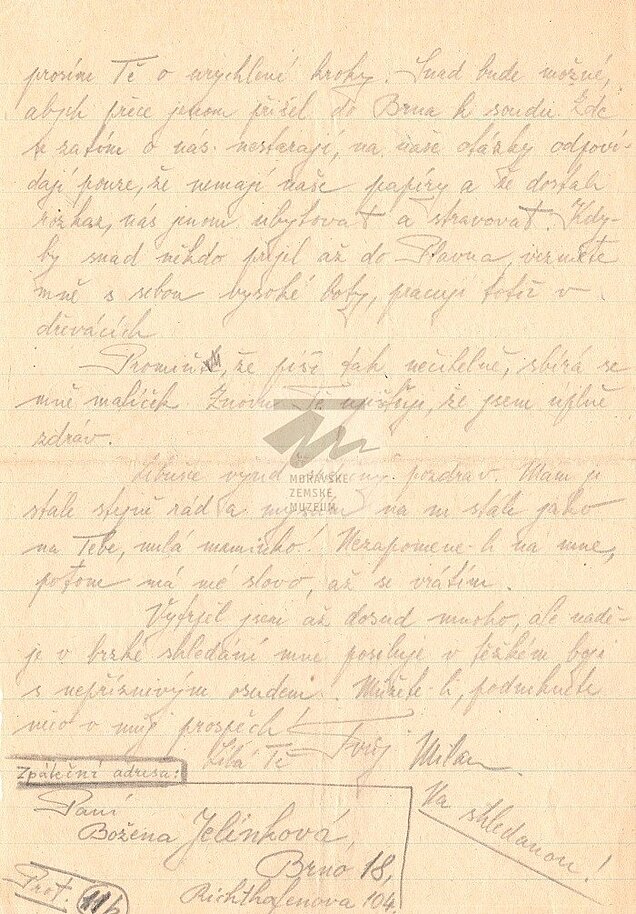 prosím Tě o urychlené kroky. Snad bude možné,
abych přece jenom přišel do Brna k soudu. Zde
se zatím o nás nestarají, na naše otázky odpoví-
dají pouze, že nemají naše papíry a že dostali
rozkaz, nás jenom ubytovat a stravovat. Kdy-
by snad někdo přijel až do Plavna, vezměte
mně s sebou vysoké boty, pracuji totiž v
dřevácích
Promiň, že píši tak nečitelně, sbírá se
mně malíček. Znovu Tě ujišťuji, že jsem úplně
zdráv.
MORAVSKÉ
ZEMSKÉ
MUZEUM
Libuše vyřiď pozdrav. Mám ji
stále stejně rád a na ni stále jako
na Tebe, milá maminko! Nezapomene-li na mne,
potom má mé slovo, až se vrátím.
Vytrpěl jsem až dosud mnoho, ale nadě-
je v brzké shledání mne posiluje v těžkém boji
s nepříznivým osudem. Můžete-li, podnikněte
něco v můj prospěch!
Líbá Tě Tvůj Milan
Na shledanou!
Zpáteční adresa:
Paní
Božena Jelínková,
Brno 18,
Richthofenova 104.
Prot.
11b